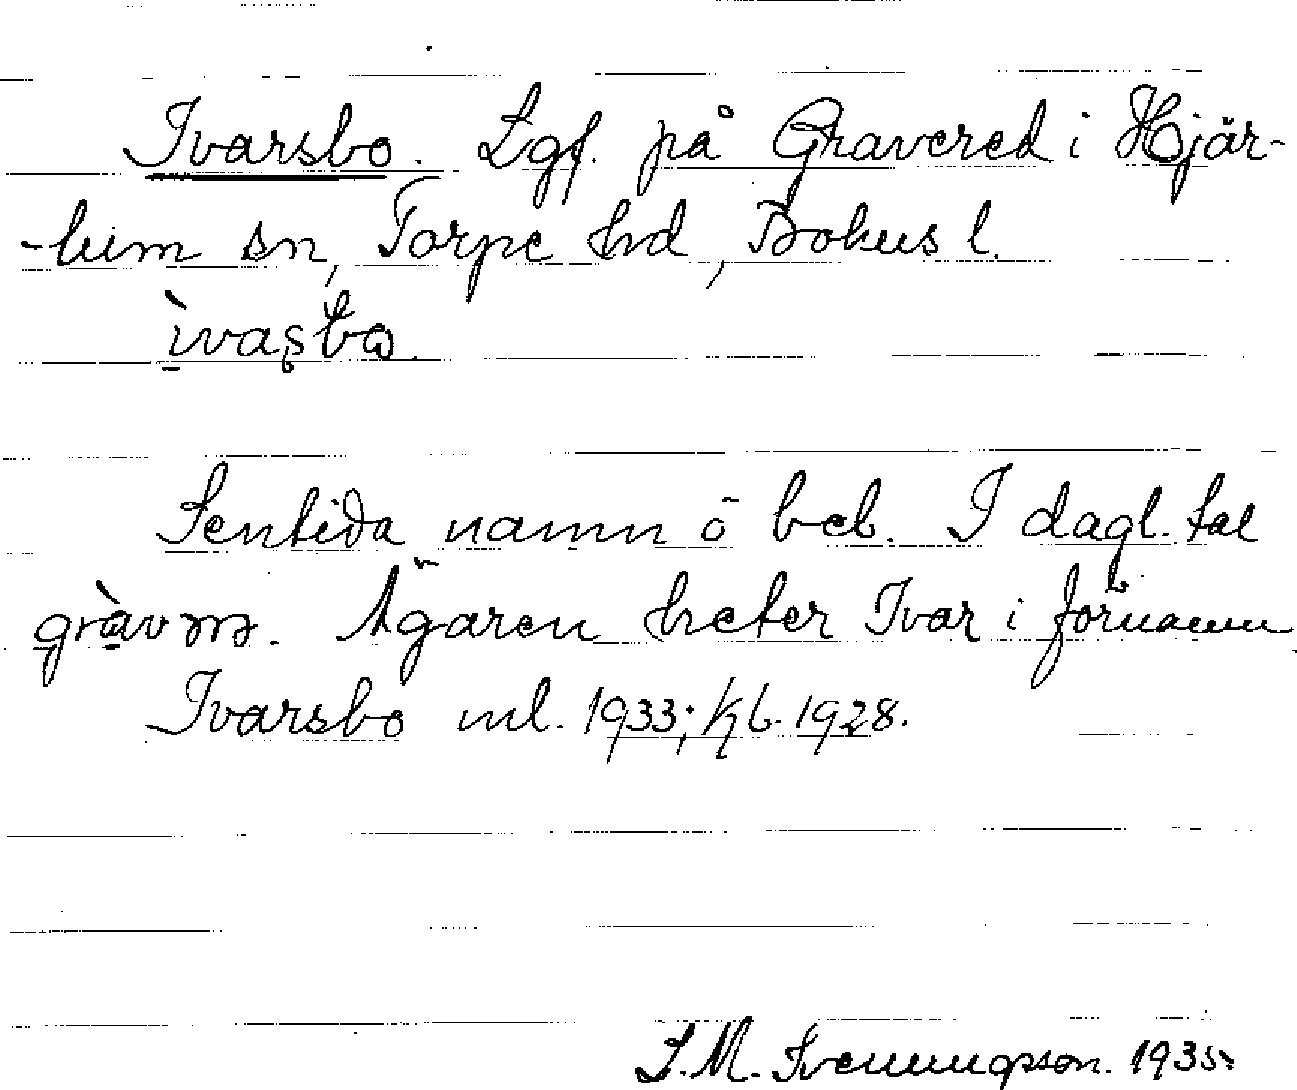 Ivarsbo. Lgf. på Gravered i Hjär-
-lum sn, Torpe hd, Bohus l.
Sentida namn o beb. I dagl. tal
Ägaren heter Ivar i förnamn
Ivarsbo ml. 1933; Kb. 1928.
S. M. Svenungson. 1935.